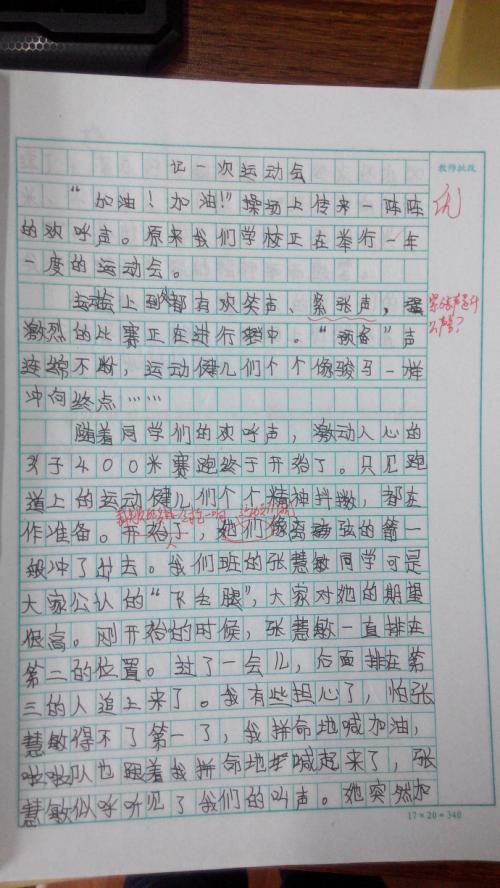 记一次运动会
教师批改
“加油！加油！”操场上传来一阵阵
的欢呼声。原来我们学校正在举行一年
一度的运动会。
运动会上到处都有欢笑声、紧张声，
激烈的比赛正在进行当中。“预备”声
连绵不断，运动健儿们个个像骏马一样
冲向终点……
随着同学们的欢呼声，激动人心的
女子400米赛跑终于开始了。只见跑
道上的运动健儿们个个精神抖擞，都在
作准备。开始了，她们像离弦的箭一
般冲了过去。我们班的张慧敏同学可是
大家公认的“飞毛腿”，大家对她的期望
很高。刚开始的时候，张慧敏一直排在
第二的位置。过了一会儿，后面排在第
三的人追上来了。我有些担心了，怕张
慧敏得不了第一了，我拼命地喊加油，
啦啦队也跟着我拼命地喊起来了，张
慧敏似乎听见了我们的叫声。她突然加
17×20=340